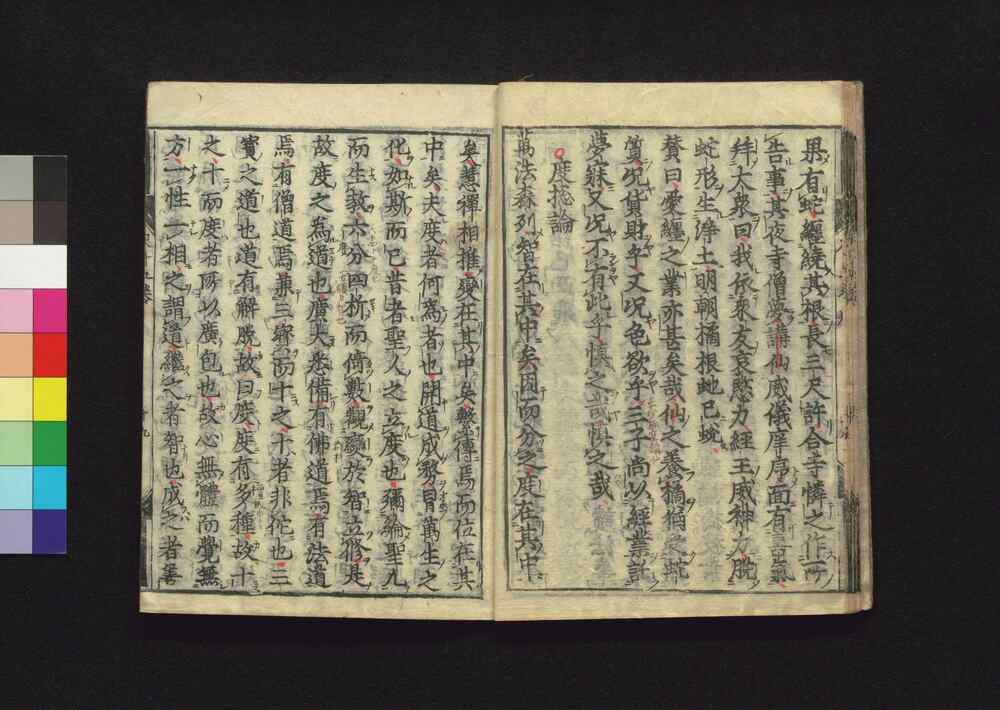 果有蛇纏繞其根長三尺許合寺憐之作
告事其夜寺僧夢講仙威儀庠序面有喜氣
拜大衆曰我依衆友哀愍力經王威神力脱
蛇形生淨土明朝橘根虵已蛻
賛曰愛纏之業亦甚矣哉仙之養橘猶之蛇
質况貨財乎又况色欲乎三子尚以經業託
夢寐又况不有此乎慎之哉慎之哉
度揔論
萬法森列智在其中矣因而分之度在其中
矣慧禪相推變在其中矣繫傳焉而位在其
中矣夫度者何爲者也開道成務冒萬生之
化如斯而已昔者聖人之立度也彌綸聖凡
而生教六分四析而倚數觀變於智立修是
故度之爲道也廣大悉備有佛道焉有法道
焉有僧道焉兼三寶而十之十者非佗也三
寶之道也道有解脱故曰度度有多種故十
之十而度者所以廣包也故心無體而覺無
方一性一相之謂道繼之者智也成之者善